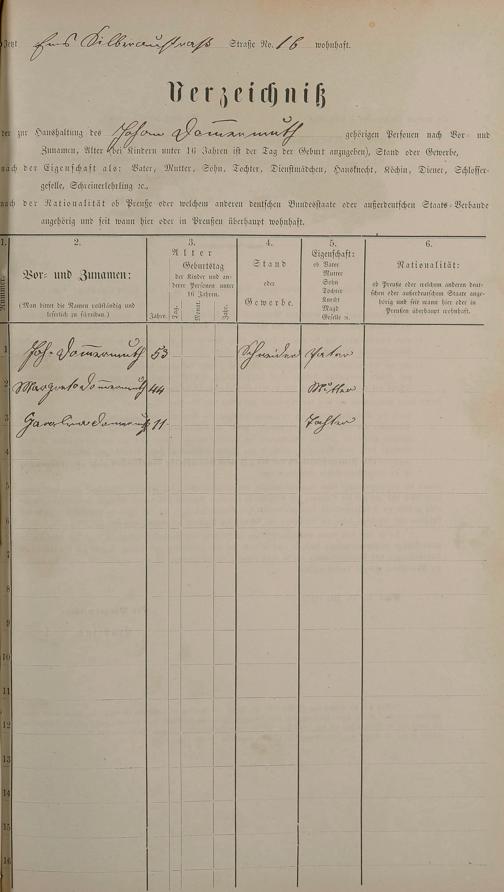 Jetzt Ems Silberaustraß Straße No. 16 wohnhaft.
Verzeichniß
der zur Haushaltung des Johann Dom̅ermuth gehörigen Personen nach Vor- und
Zunamen, Alter (bei Kindern unter 16 Jahren ist der Tag der Geburt anzugeben), Stand oder Gewerbe,
nach der Eigenschaft als: Vater, Mutter, Sohn, Tochter, Dienstmädchen, Hausknecht, Köchin, Diener, Schlosser-
geselle, Schreinerlehrling ꝛc.,
nach der Nationalität ob Preuße oder welchem anderen deutschen Bundesstaate oder außerdeutschen Staats-Verbande
angehörig und seit wann hier oder in Preußen überhaupt wohnhaft.
1.
Nummer.
2.
Vor- und Zunamen:
(Man bittet die Namen vollständig und
leserlich zu schreiben.)
3.
Alter
Geburtstag
der Kinder und an-
derer Personen unter
16 Jahren.
Jahre.
Tag.
Monat.
Jahr.
4.
Stand
oder
Gewerbe.
5.
Eigenschaft:
ob Vater
Mutter
Sohn
Tochter
Knecht
Magd
Geselle ꝛc.
6.
Nationalität:
ob Preuße oder welchem anderen deut-
schen oder außerdeutschem Staate ange-
hörig und seit wann hier oder in
Preußen überhaupt wohnhaft.
1 Joh. Dom̅ermuth 53 Schneider Vater
2 Margreta Dom̅ermuth 44 Mutter
3 11 Tochter
4
5
6
7
8
9
10
11
12
13
14
15
16